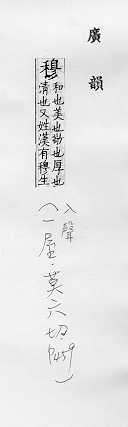 廣韻
穆
和也美也敬也厚也
清也又姓漢有穆生
入聲
(一屋．莫六切．P459)